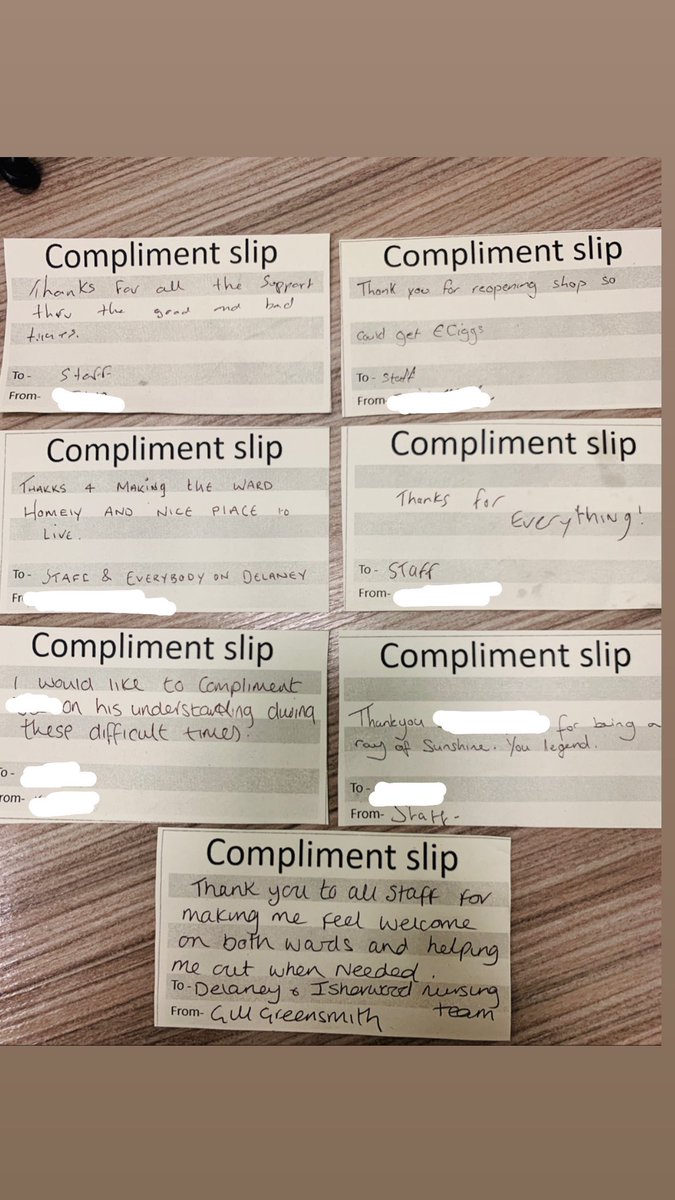 Compliment slip
Thanks For all the Support
thru the good and bad
times.
To - Staff
From-
Compliment slip
Thank you for reopening shop so
could get ECiggs
To - Staff
From-
Compliment slip
THANKS 4 MAKING the WARD
HOMELY AND NICE PLACE to
LIVE.
To - STAFF & EVERYBODY ON DELANEY
Fr
Compliment slip
Thanks for
Everything!
To - STAFF
From-
Compliment slip
I would like to compliment
on his understanding during
these difficult times.
o -
rom-
Compliment slip
Thankyou for being a
ray of Sunshine. You legend.
To -
From- Staff-
Compliment slip
Thank you to all staff for
making me feel welcome
on both wards and helping
me out when Needed.
To - Delaney & Isherwood nursing
team
From- Gill Greensmith